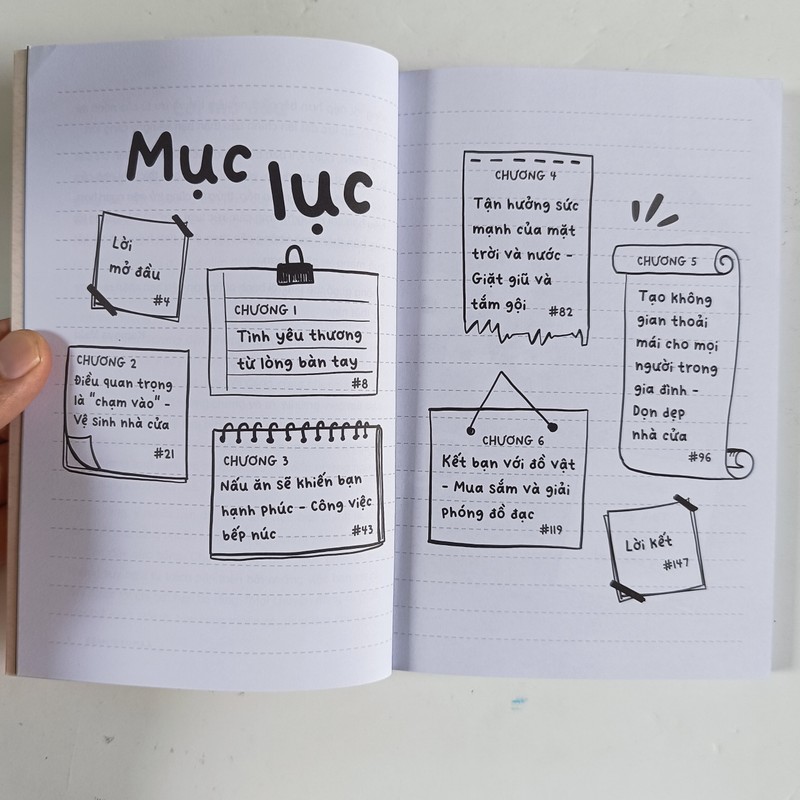 Mục
lục
Lời
mở đầu
#4
CHƯƠNG 1
Tình yêu thương
từ lòng bàn tay
#8
CHƯƠNG 2
Điều quan trọng
là "chạm vào" -
Vệ sinh nhà cửa
#21
CHƯƠNG 3
Nấu ăn sẽ khiến bạn
hạnh phúc - Công việc
bếp núc
#43
CHƯƠNG 4
Tận hưởng sức
mạnh của mặt
trời và nước -
Giặt giũ và
tắm gội
#82
CHƯƠNG 5
Tạo không
gian thoải
mái cho mọi
người trong
gia đình -
Dọn dẹp
nhà cửa
#96
CHƯƠNG 6
Kết bạn với đồ vật
- Mua sắm và giải
phóng đồ đạc
#119
Lời kết
#147